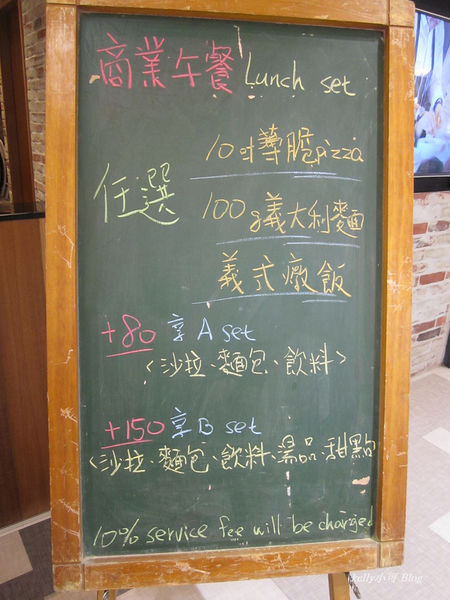 商業午餐 Lunch set
任選
10吋薄脆pizza
100g義大利麵
義式燉飯
+80 享 A set
<沙拉、麵包、飲料>
+150 享 B set
<沙拉、麵包、飲料、湯品、甜點
10% service fee will be charged
Kelly小可 Blog